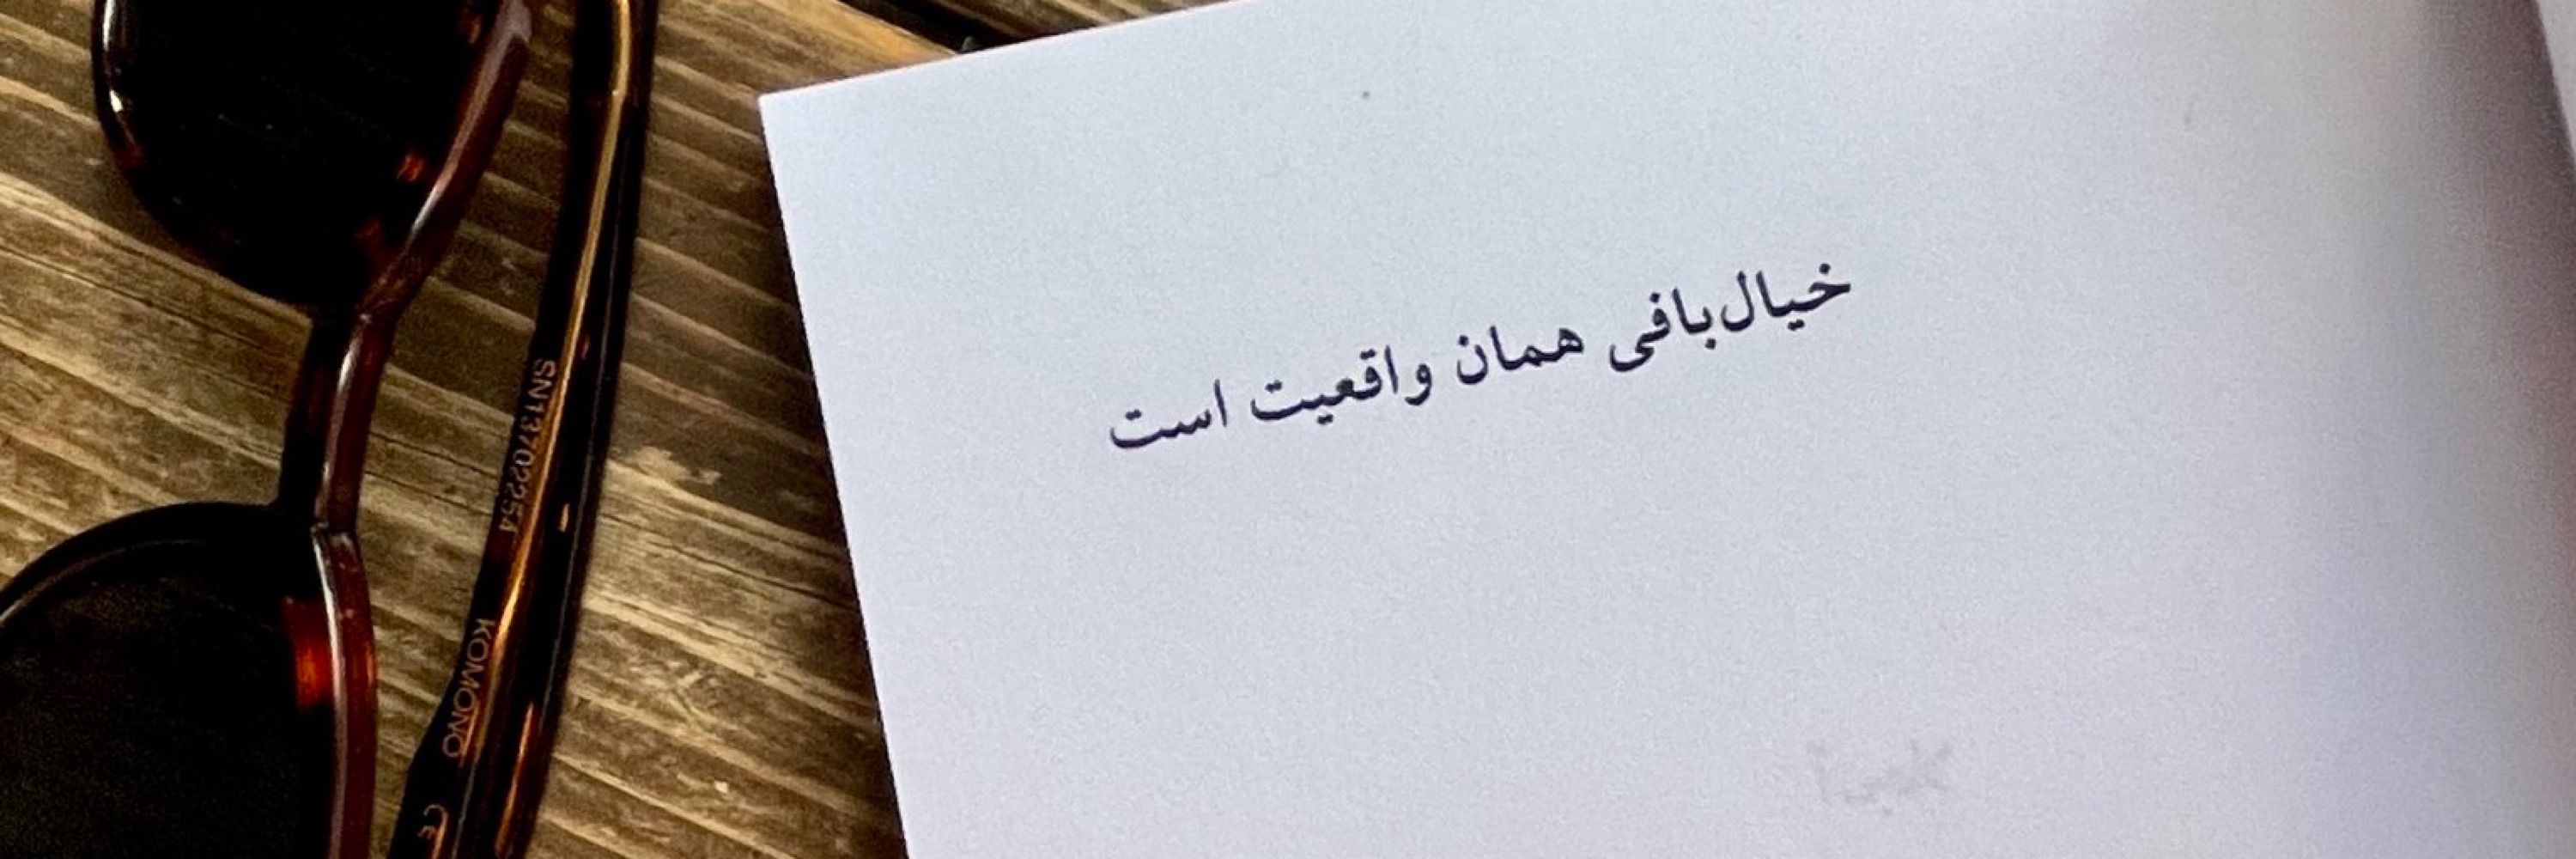 خیال‌بافی همان واقعیت است
SN13702254
KOMONO
CE